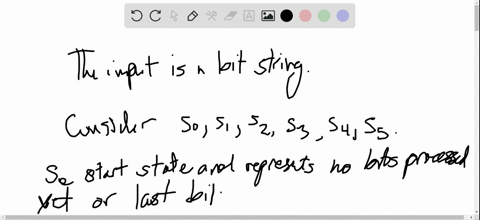 The input is a bit string.
Consider S0, S1, S2, S3, S4, S5.
S0 start state and represents no bits processed
yet or last bit